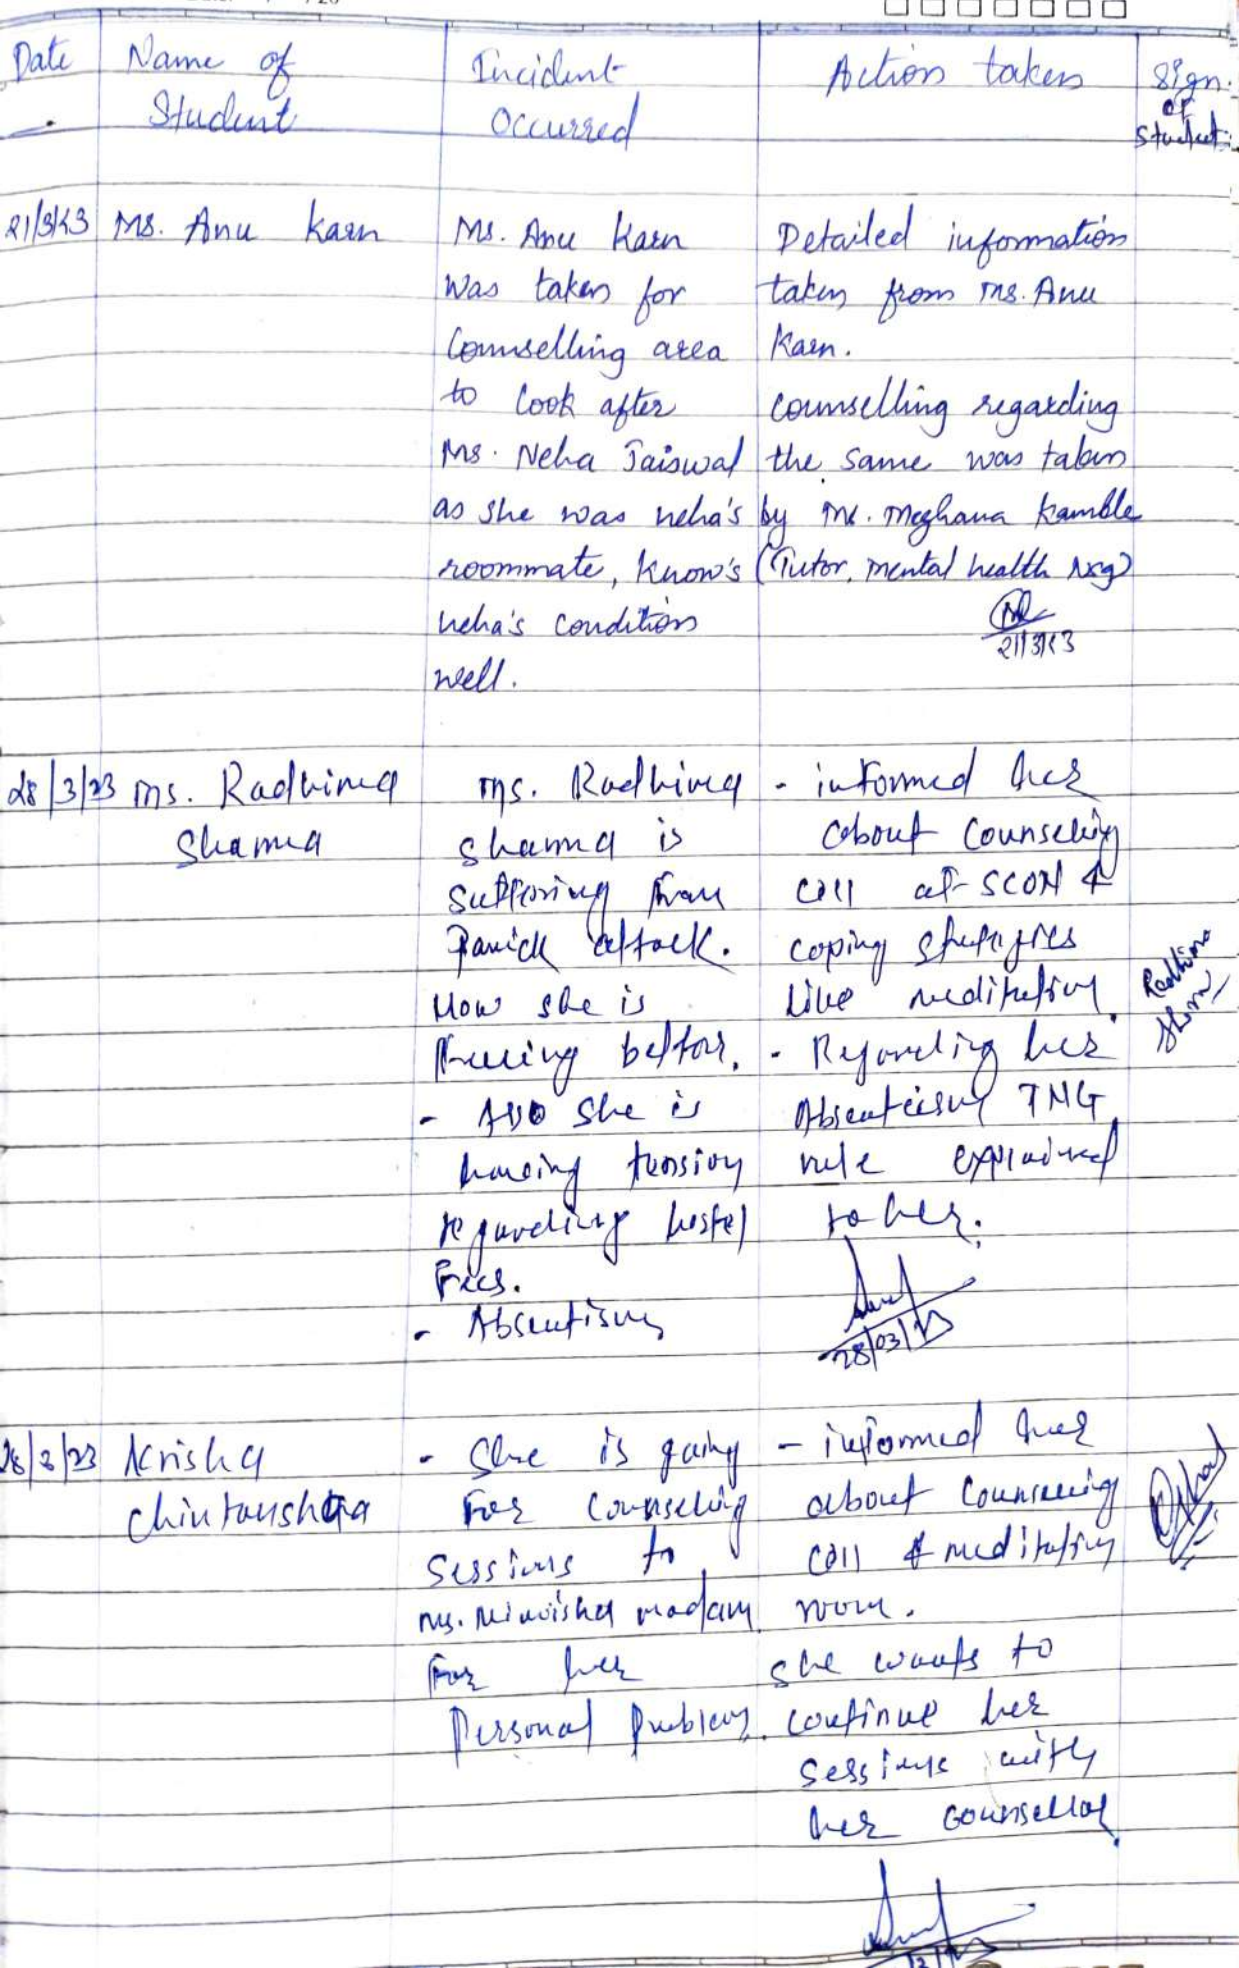 Date
Name of
Student
Incident
Occurred
Action taken
Sign.
of
Student
21/3/23
Ms. Anu Karn
Ms. Anu Karn
was taken for
Counselling area
to look after
Ms. Neha Jaiswal
as she was neha's
roommate, know's
neha's condition
well.
Detailed information
taken from Ms. Anu
Karn.
counselling regarding
the same was taken
by Ms. Meghana Kamble
(Tutor, mental health Nsg)
21/3/23
28/3/23
Ms. Radhima
Sharma
Ms. Radhima
Sharma is
Suffering from
Panick attack.
Now she is
feeling better.
- Also she is
having tension
regarding hostel
Fees.
- Absentism
- informed her
about Counseling
cell at SCON &
coping strategies
like meditation.
- Regarding her
Absenteism
rule explained
to her.
28/03/23
Radhima
28/3/23
Krisha
- She is going
For Counseling
Sessions to
Ms. madam
For her
Personal Problem.
- informed her
about Counseling
cell & meditation
room.
She wants to
continue her
sessions with
her counsellor.